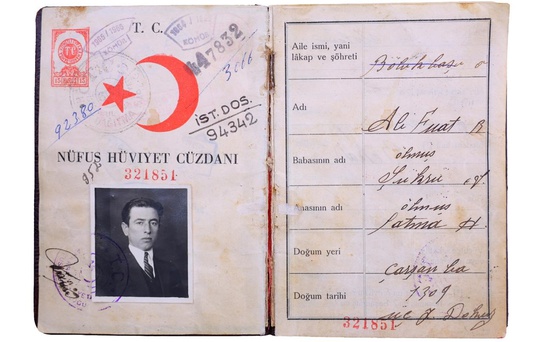 T. C.
447832
3611
92380
İST. DOS.
94342
NÜFUS HÜVİYET CÜZDANI
321851
952
Aile ismi, yani
lâkap ve şöhreti
Bölükbaşı
Adı
Ali Fuat
Babasının adı
ölmüş
Şükrü
Anasının adı
ölmüş
Fatma
Doğum yeri
Çarşanba
Doğum tarihi
1309
321851